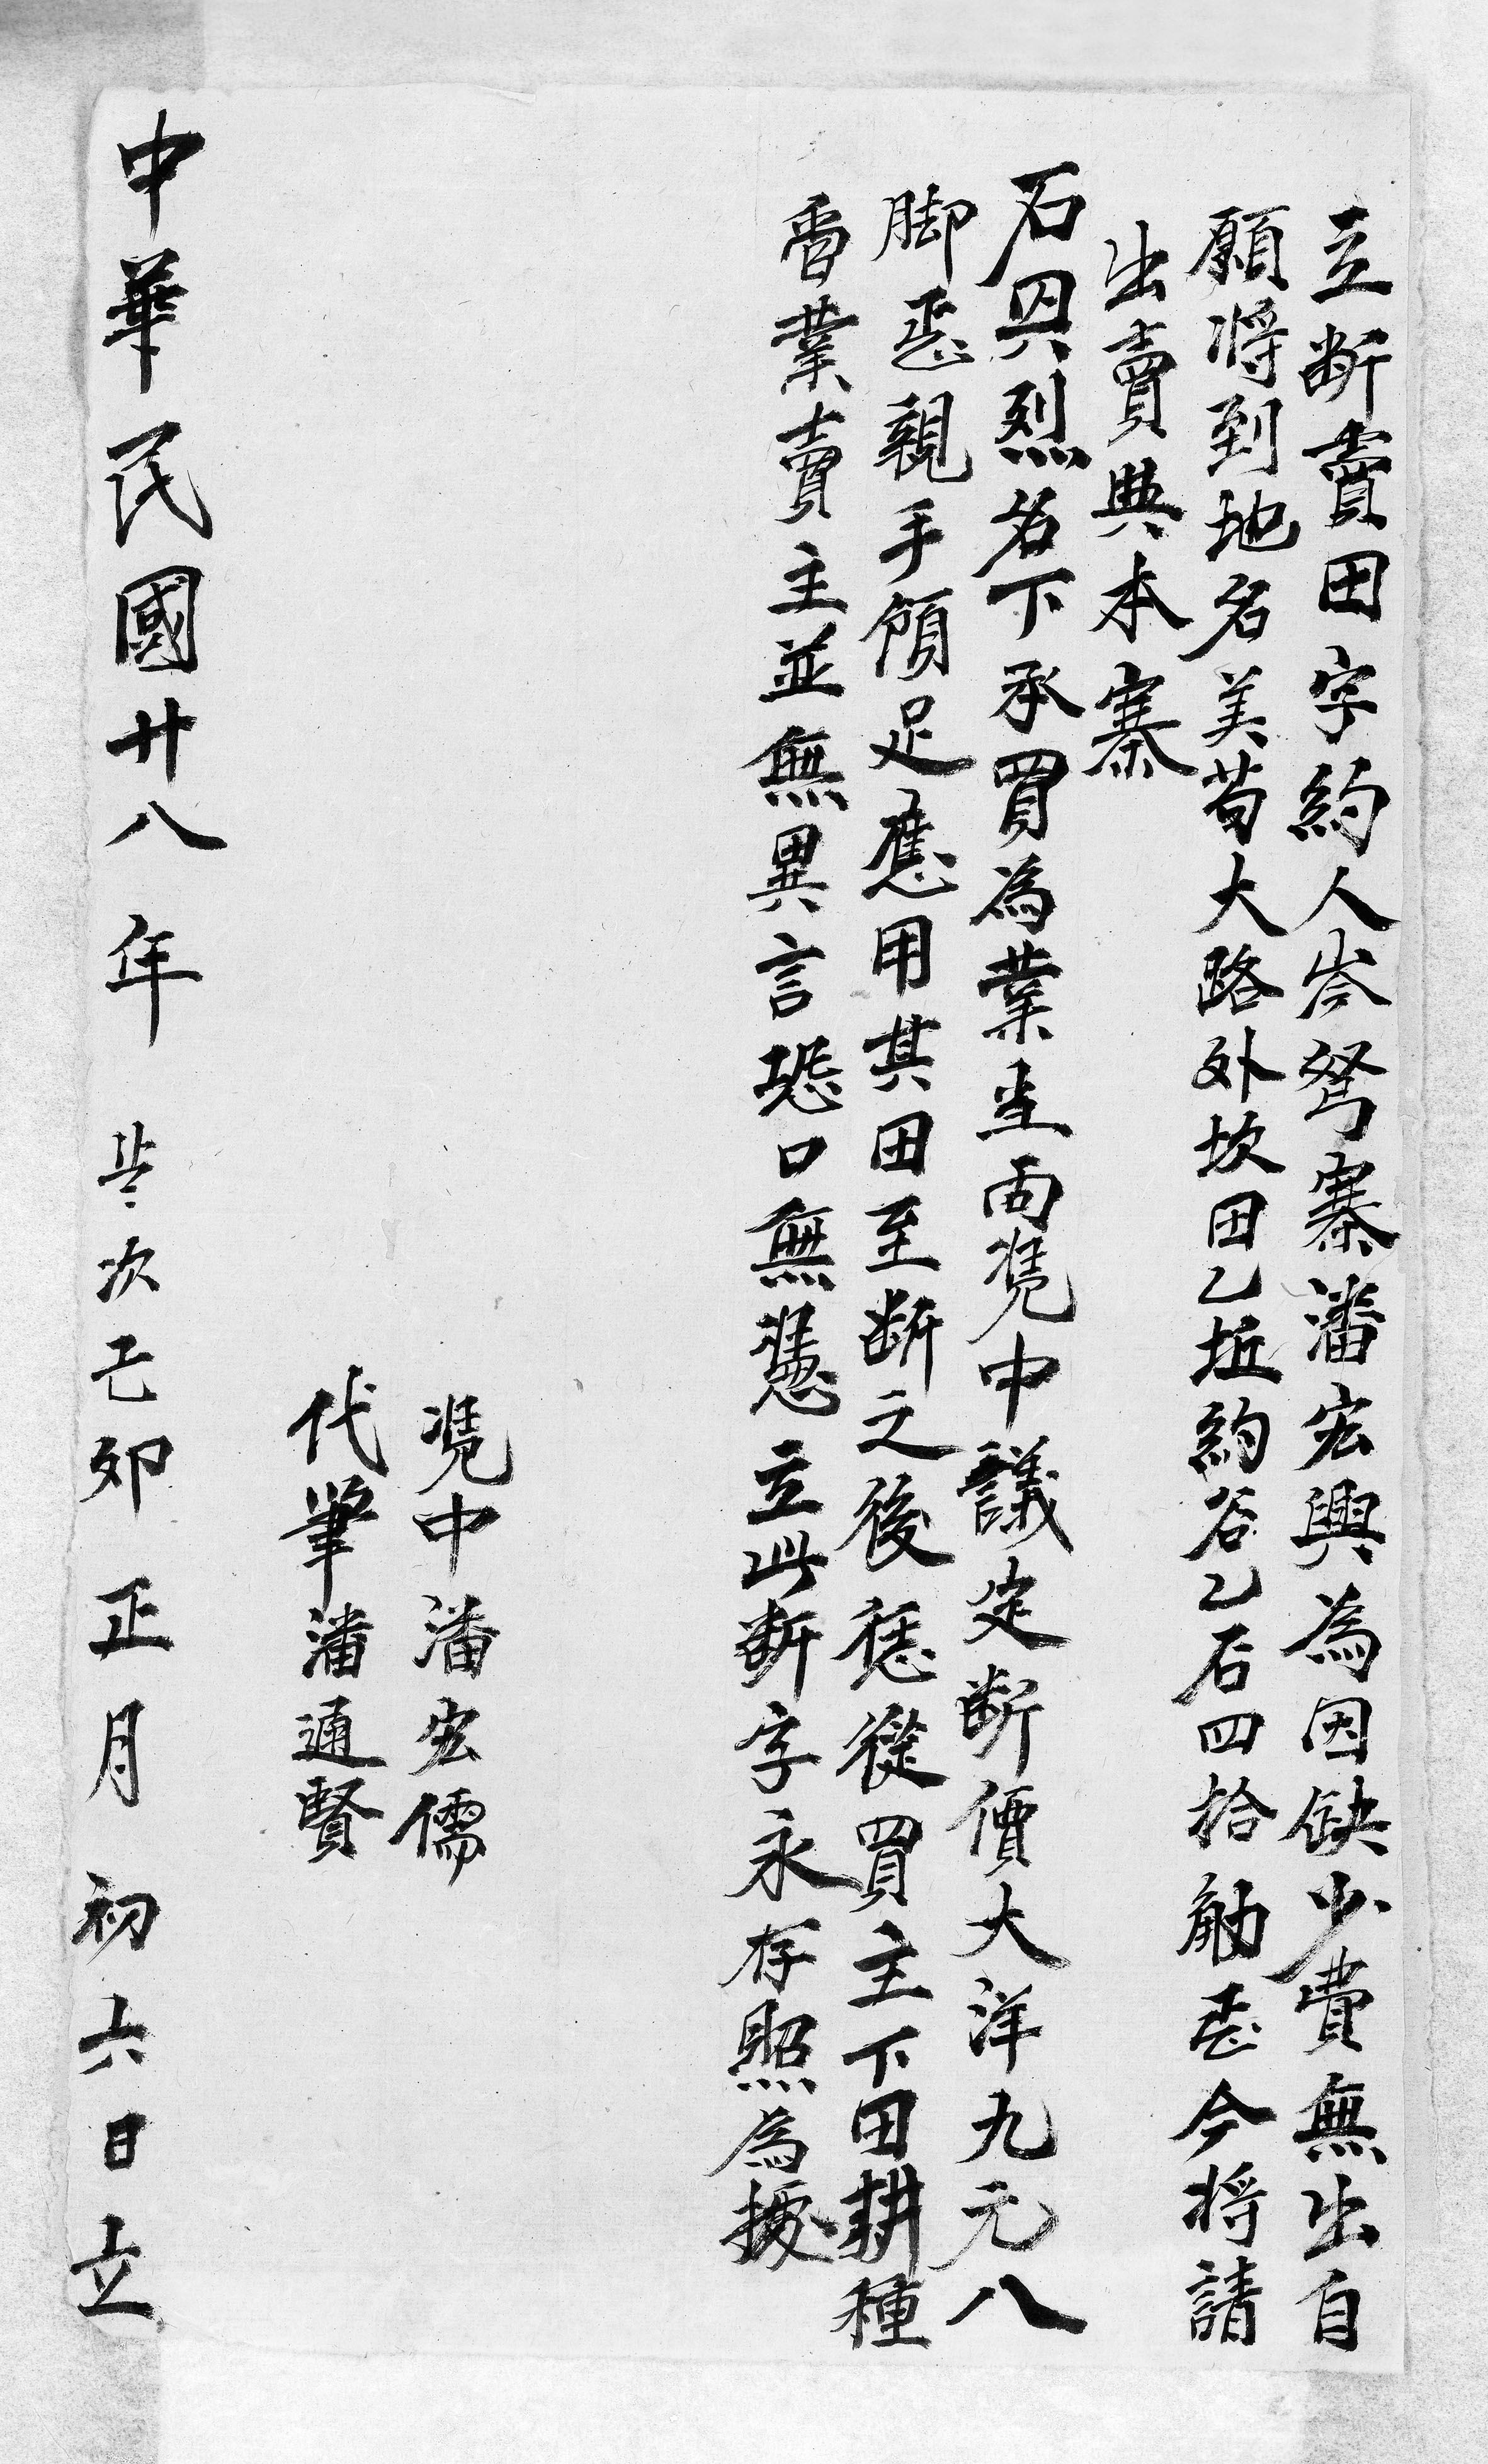 立断賣田字約人岑弩寨潘宏興為因缺少費無出自
願將到地名美苟大路外坎田乙坵約谷乙石四拾觔正今將請
出賣與本寨
石烈名下承買為業主面凭中議定断價大洋九元八
脚正親手領足應用其田至断之後任從買主下田耕種
管業賣主並無異言恐口無憑立此断字永存照為據
凭中潘宏儒
代筆潘通賢
中華民國廿八年歲次己卯正月初六日立